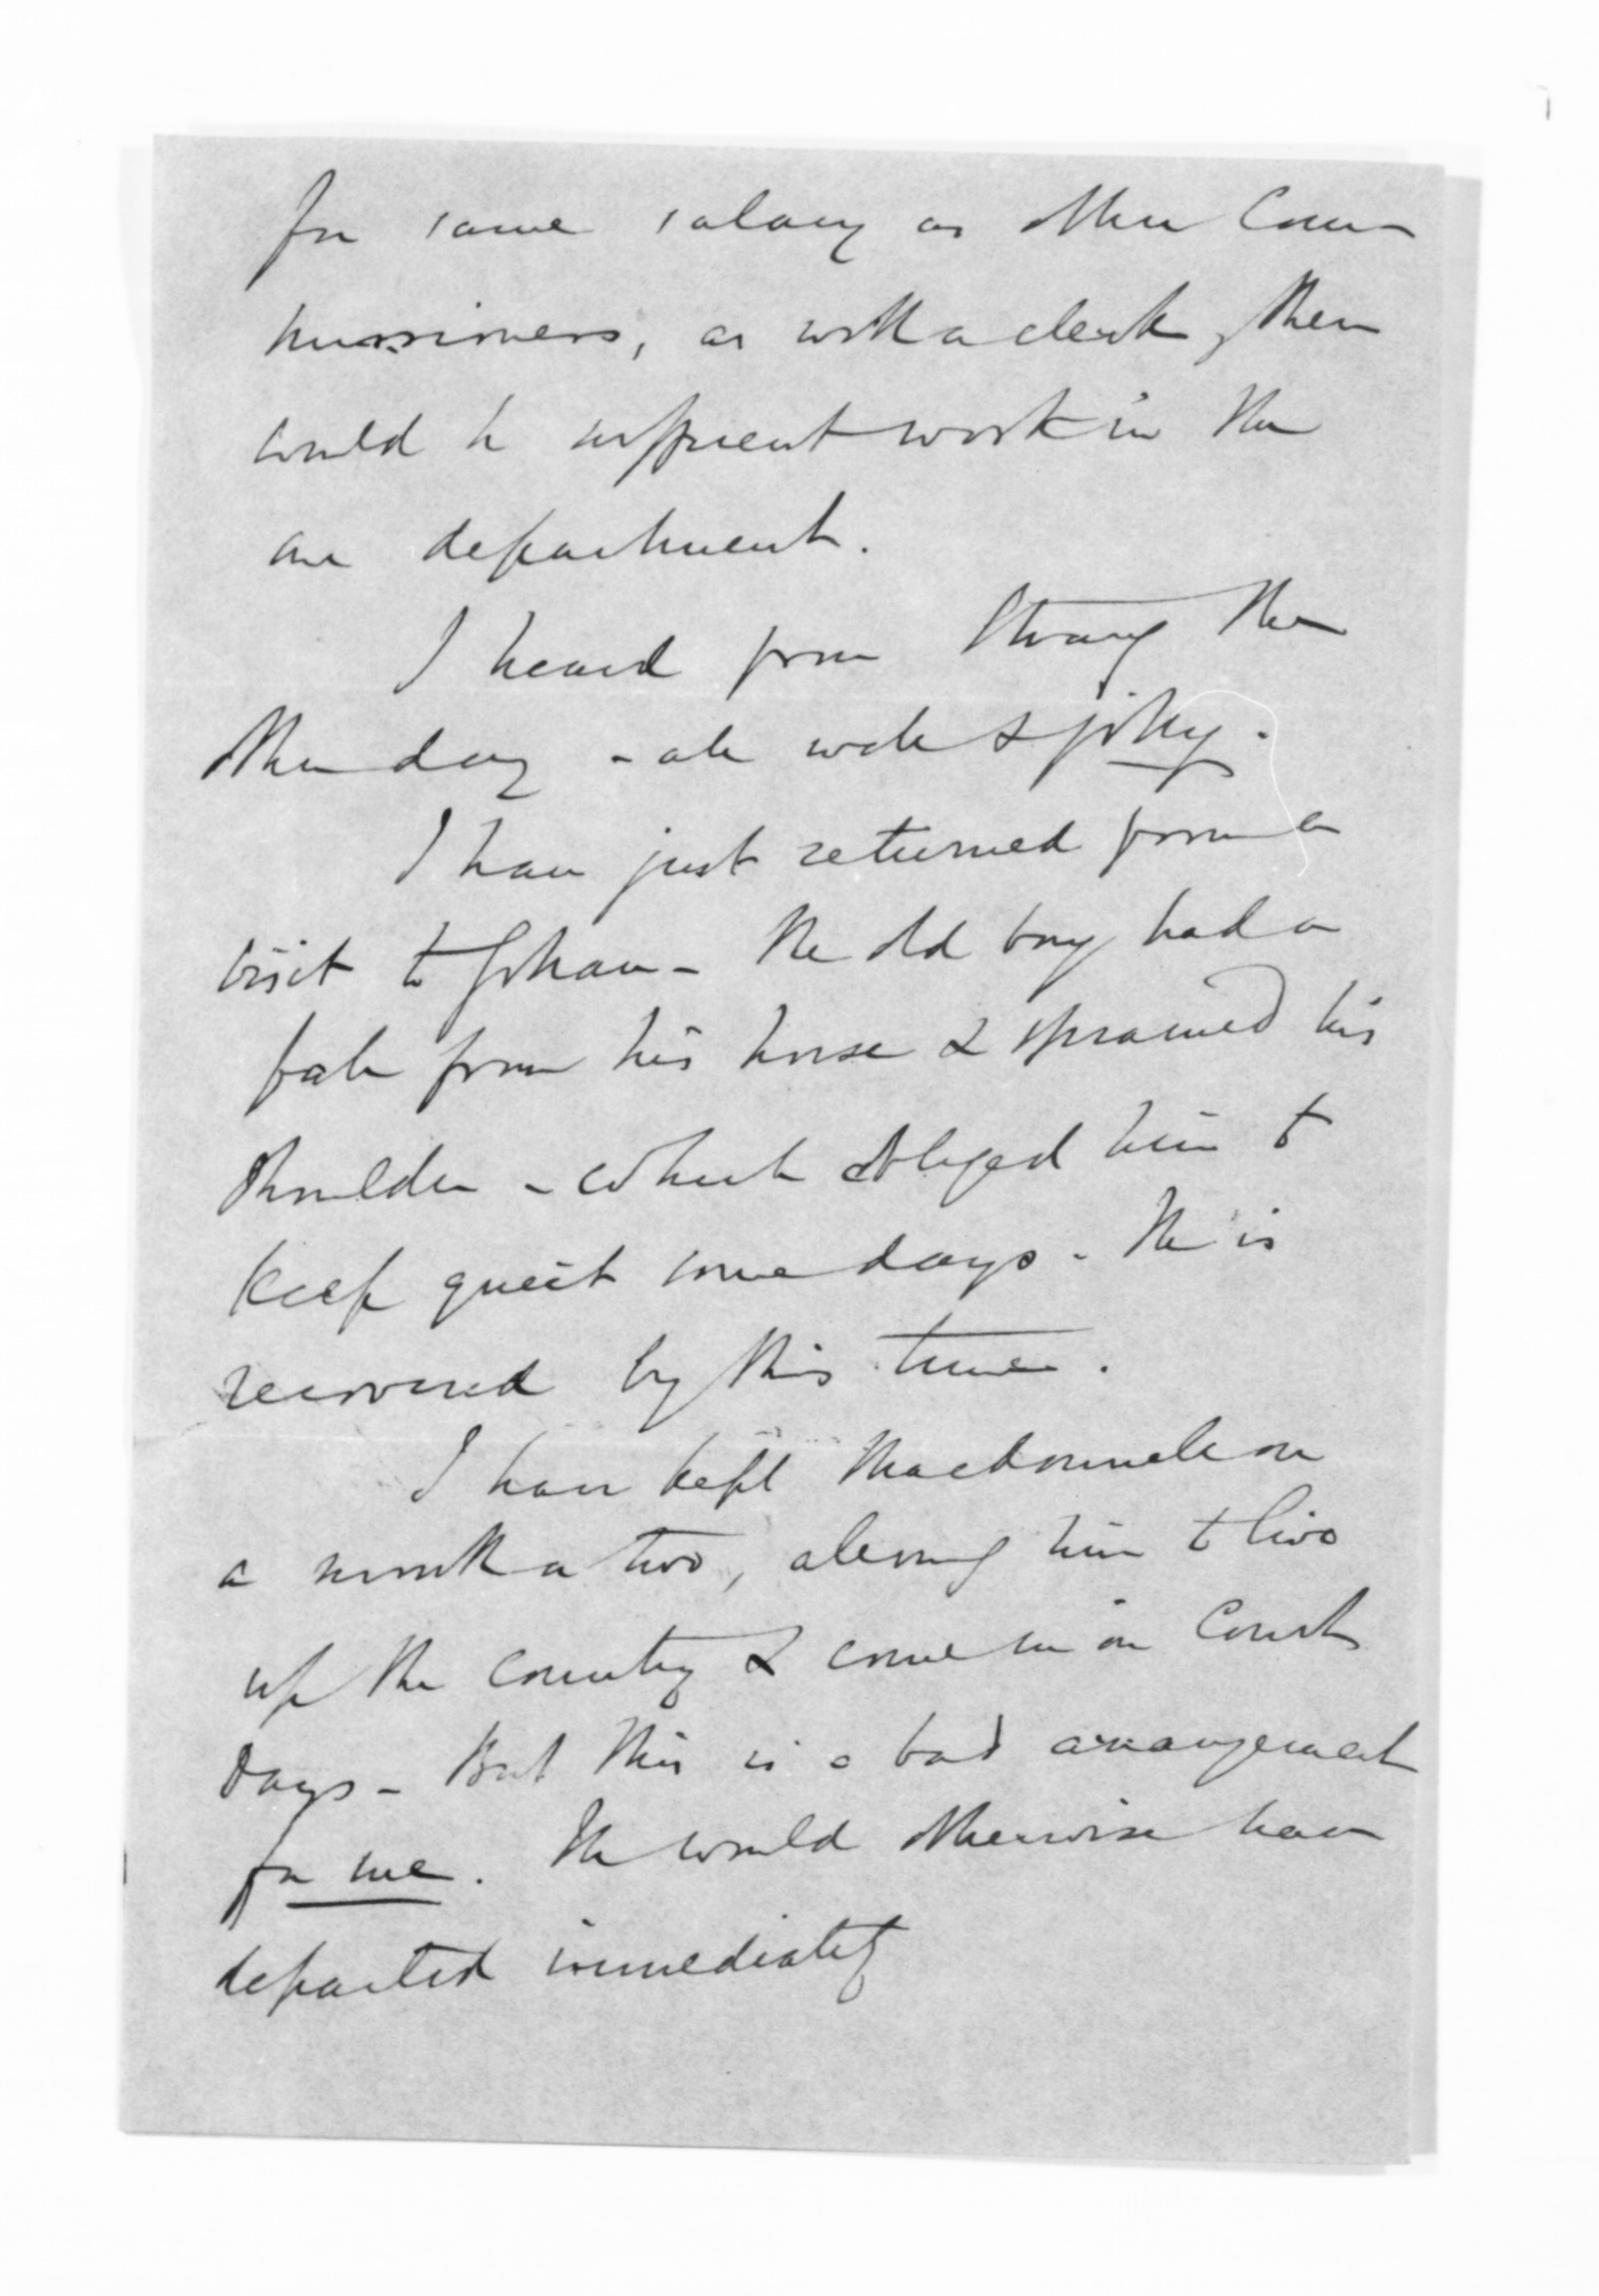 for same salary as other Com-
missioners, as with a clerk, there
would be sufficient work in the
one department.
I heard from Strang the
other day - all well & jolly.
I have just returned from a
visit to Johan - The old boy had a
fall from his horse & sprained his
shoulder - which obliged him to
keep quiet some days - He is
recovered by this time.
I have kept Macdonnell on
a month or two, allowing him to live
up the country & come in on Court
days - But this is a bad arrangement
for me. He would otherwise have
departed immediately